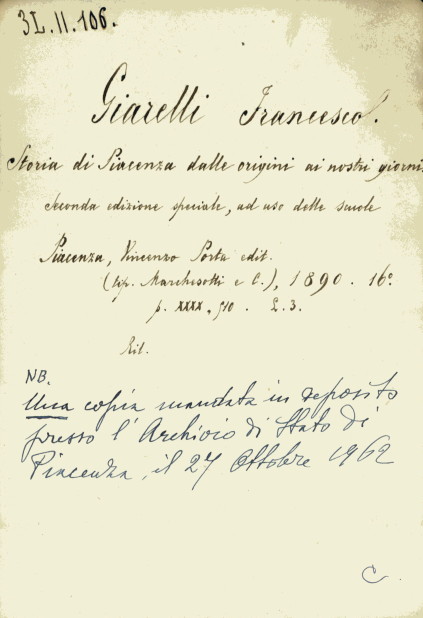 3L.II.106.
Giarelli Francesco.
Storia di Piacenza dalle origini ai nostri giorni.
Seconda edizione speciale, ad uso delle scuole
Piacenza, Vincenzo Porta edit.
(tip. Marchesotti e C.), 1890. 16º
p. XXXX, 510. L.3.
Ril.
NB.
Una copia mandata in deposito
presso l'Archivio di Stato di
Piacenza, il 27 Ottobre 1962
C.